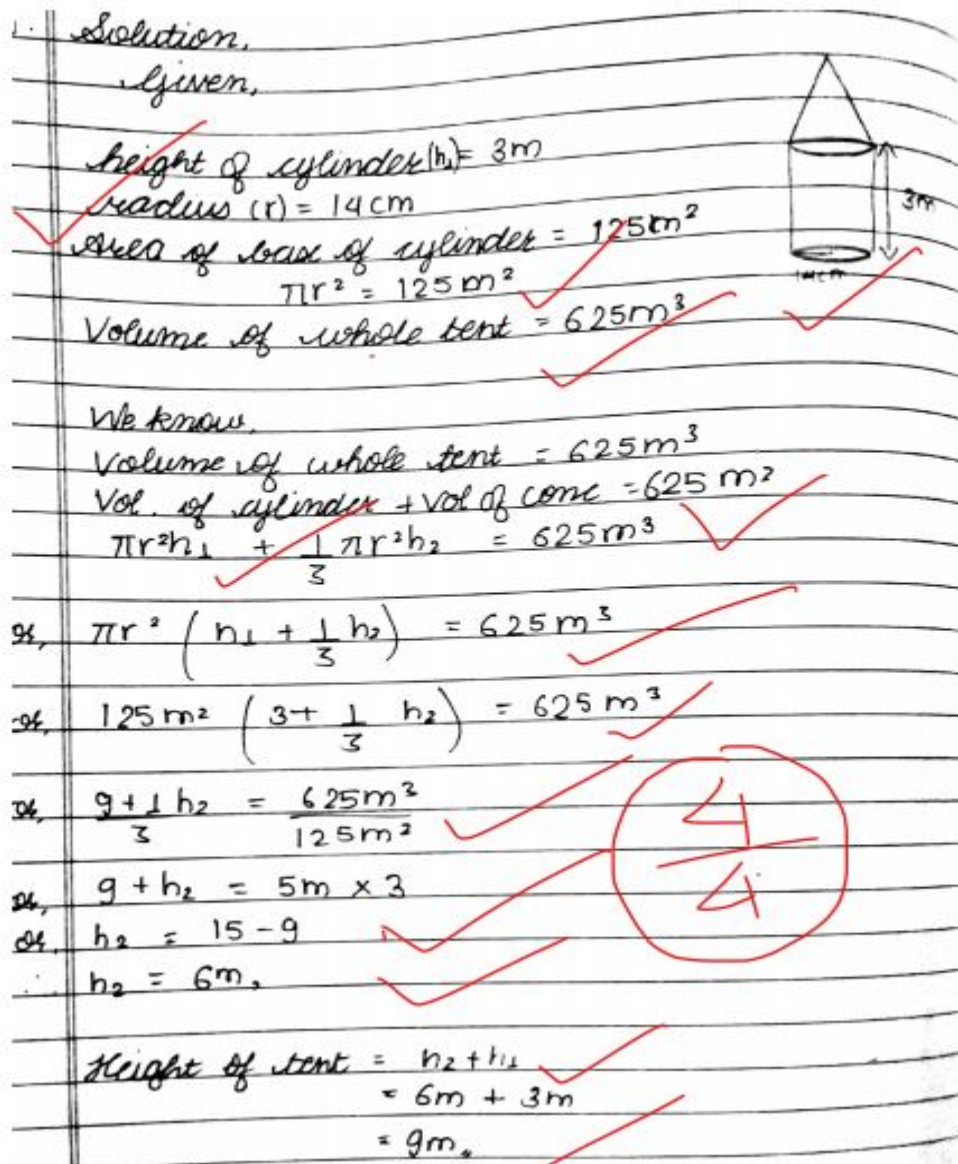 1. Solution,
Given,
height of cylinder (h₁) = 3m
radius (r) = 14cm
Area of base of cylinder = 125m²
πr² = 125m²
Volume of whole tent = 625m³
3m
14cm
We know,
Volume of whole tent = 625m³
Vol. of cylinder + Vol of cone = 625 m²
πr²h₁ + 1/3 πr²h₂ = 625m³
or, πr² (h₁ + 1/3 h₂) = 625m³
or, 125m² (3 + 1/3 h₂) = 625m³
or, 9 + 1 h₂ / 3 = 625m³ / 125m²
or, 9 + h₂ = 5m × 3
or, h₂ = 15 - 9
h₂ = 6m,
4/4
Height of tent = h₂ + h₁
= 6m + 3m
= 9m,